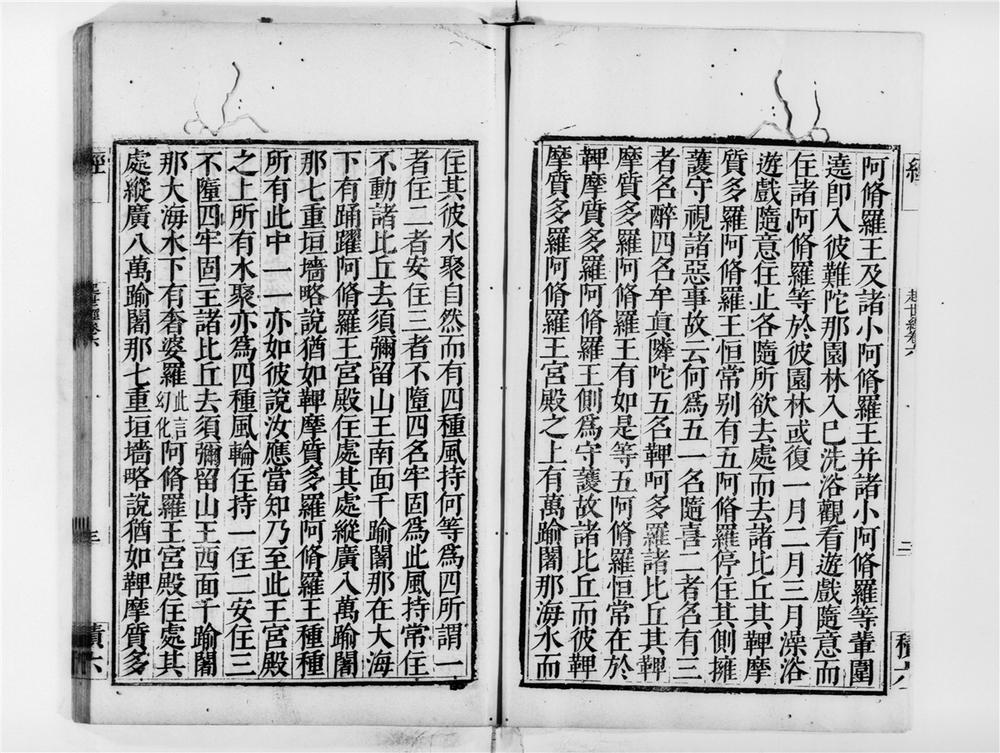 經
起世經卷六
二
積六
阿脩羅王及諸小阿脩羅王并諸小阿脩羅等輩圍
遶卽入彼難陀那園林入已洗浴觀看遊戲隨意而
住諸阿脩羅等於彼園林或復一月二月三月澡浴
遊戲隨意住止各隨所欲去處而去諸比丘其鞞摩
質多羅阿脩羅王恒常別有五阿脩羅停住其側擁
護守視諸惡事故云何爲五一名隨喜二者名有三
者名醉四名牟眞隣陀五名鞞呵多羅諸比丘其鞞
摩質多羅阿脩羅王有如是等五阿脩羅恒常在於
鞞摩質多羅阿脩羅王側爲守護故諸比丘而彼鞞
摩質多羅阿脩羅王宮殿之上有萬踰闍那海水而
住其彼水聚自然而有四種風持何等爲四所謂一
者住二者安住三者不墮四名牢固爲此風持常住
不動諸比丘去須彌留山王南面千踰闍那在大海
下有踊躍阿脩羅王宮殿住處其處縱廣八萬踰闍
那七重垣墻略說猶如鞞摩質多羅阿脩羅王種種
所有此中一一亦如彼說汝應當知乃至此王宮殿
之上所有水聚亦爲四種風輪住持一住二安住三
不墮四牢固王諸比丘去須彌留山王西面千踰闍
那大海水下有奢婆羅此言幻化阿脩羅王宮殿住處其
處縱廣八萬踰闍那七重垣墻略說猶如鞞摩質多
經
起世經卷六
三
積六